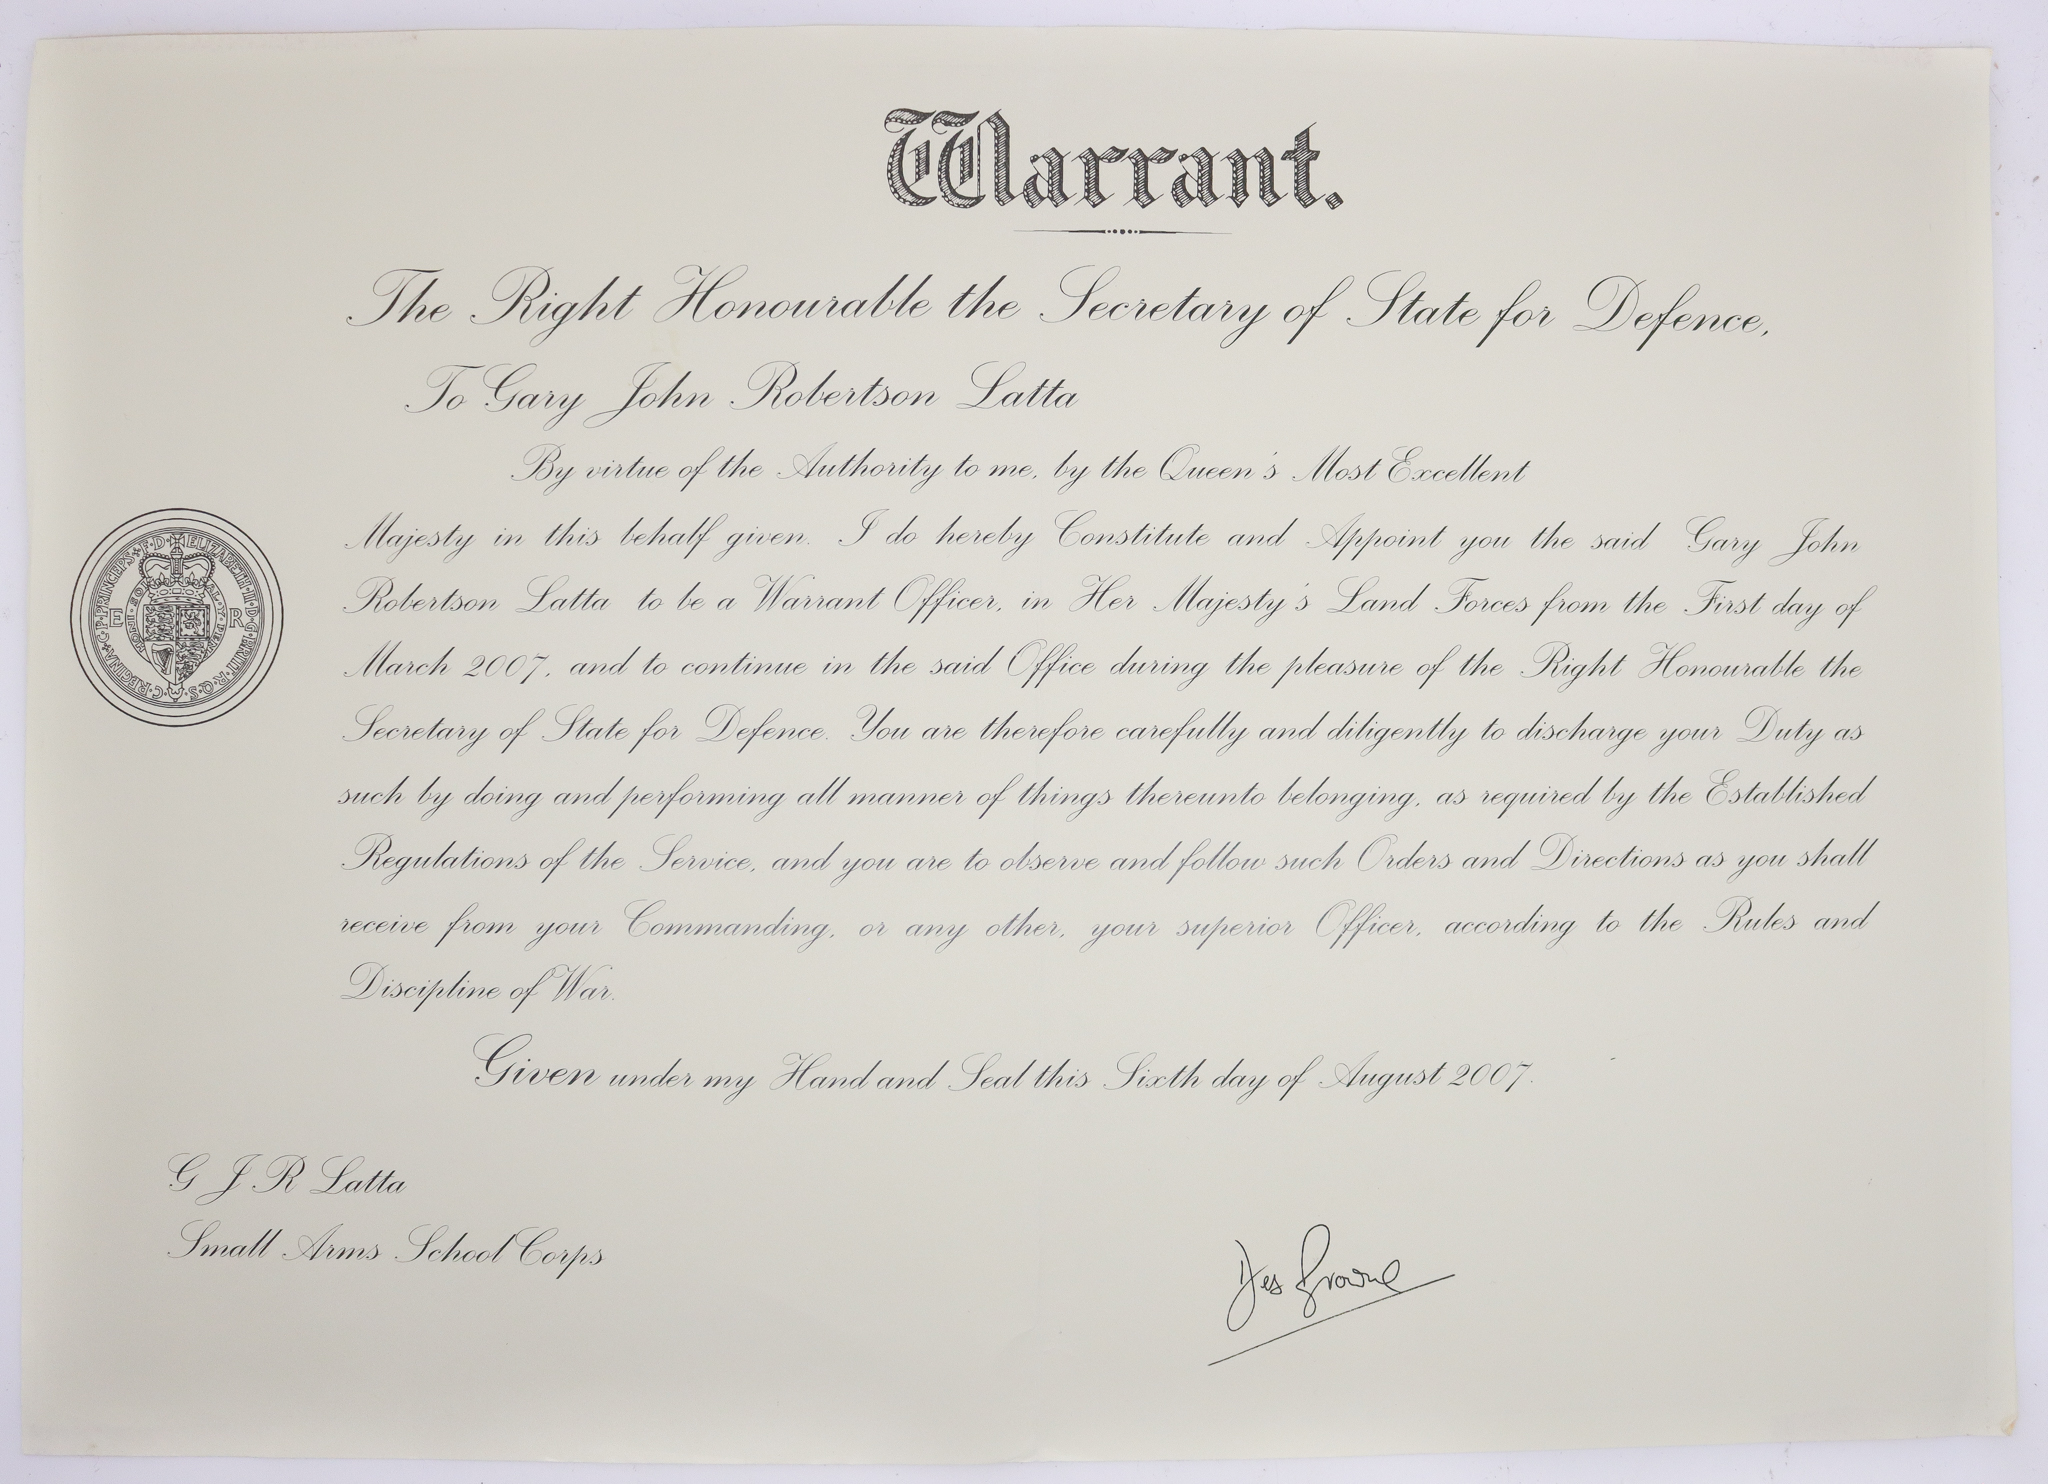 Warrant.
The Right Honourable the Secretary of State for Defence,
To Gary John Robertson Latta
By virtue of the Authority to me, by the Queen's Most Excellent
Majesty in this behalf given. I do hereby Constitute and Appoint you the said Gary John
Robertson Latta to be a Warrant Officer, in Her Majesty's Land Forces from the First day of
March 2007, and to continue in the said Office during the pleasure of the Right Honourable the
Secretary of State for Defence. You are therefore carefully and diligently to discharge your Duty as
such by doing and performing all manner of things thereunto belonging, as required by the Established
Regulations of the Service, and you are to observe and follow such Orders and Directions as you shall
receive from your Commanding, or any other, your superior Officer, according to the Rules and
Discipline of War.
Given under my Hand and Seal this Sixth day of August 2007.
ELIZABETH·II·D·G·BRITT·R·Q·S·C·C·REGINA·C·P·PRINCEPS·F·D·
E R
HONI·SOI
G J R Latta
Small Arms School Corps
Des Browne